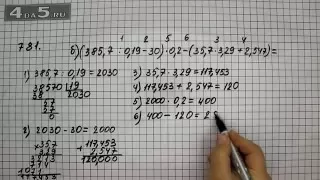 4DA5.RU
1 2 5 6 3 4
781. б) (385,7 : 0,19 - 30) · 0,2 - (35,7 · 3,29 + 2,547) =
1) 385,7 : 0,19 = 2030
38570 | 19
38 | 2030
57
57
0
2) 2030 - 30 = 2000
3) 35,7 · 3,29 = 117,453
4) 117,453 + 2,547 = 120
5) 2000 · 0,2 = 400
6) 400 - 120 = 28
× 357
329
3213
714
1071
+ 117,453
2,547
120,000